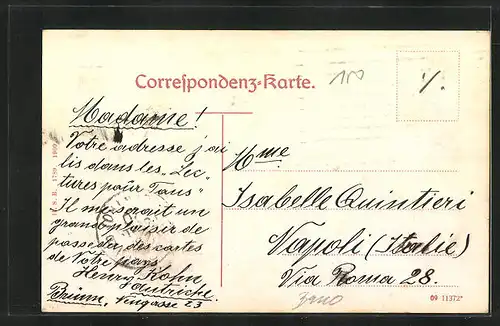 Correspondenz-Karte.
Madame!
Votre adresse j'ai
lis dans les „Lec-
tures pour Tous"
Il me serait un
grand plaisir de
posseder des cartes
de Votre pays
Henry Kohn
Brünn, Autriche
23
Mme
Isabelle Quintieri
Napoli (Italie)
Via Roma 28.
09 11372*